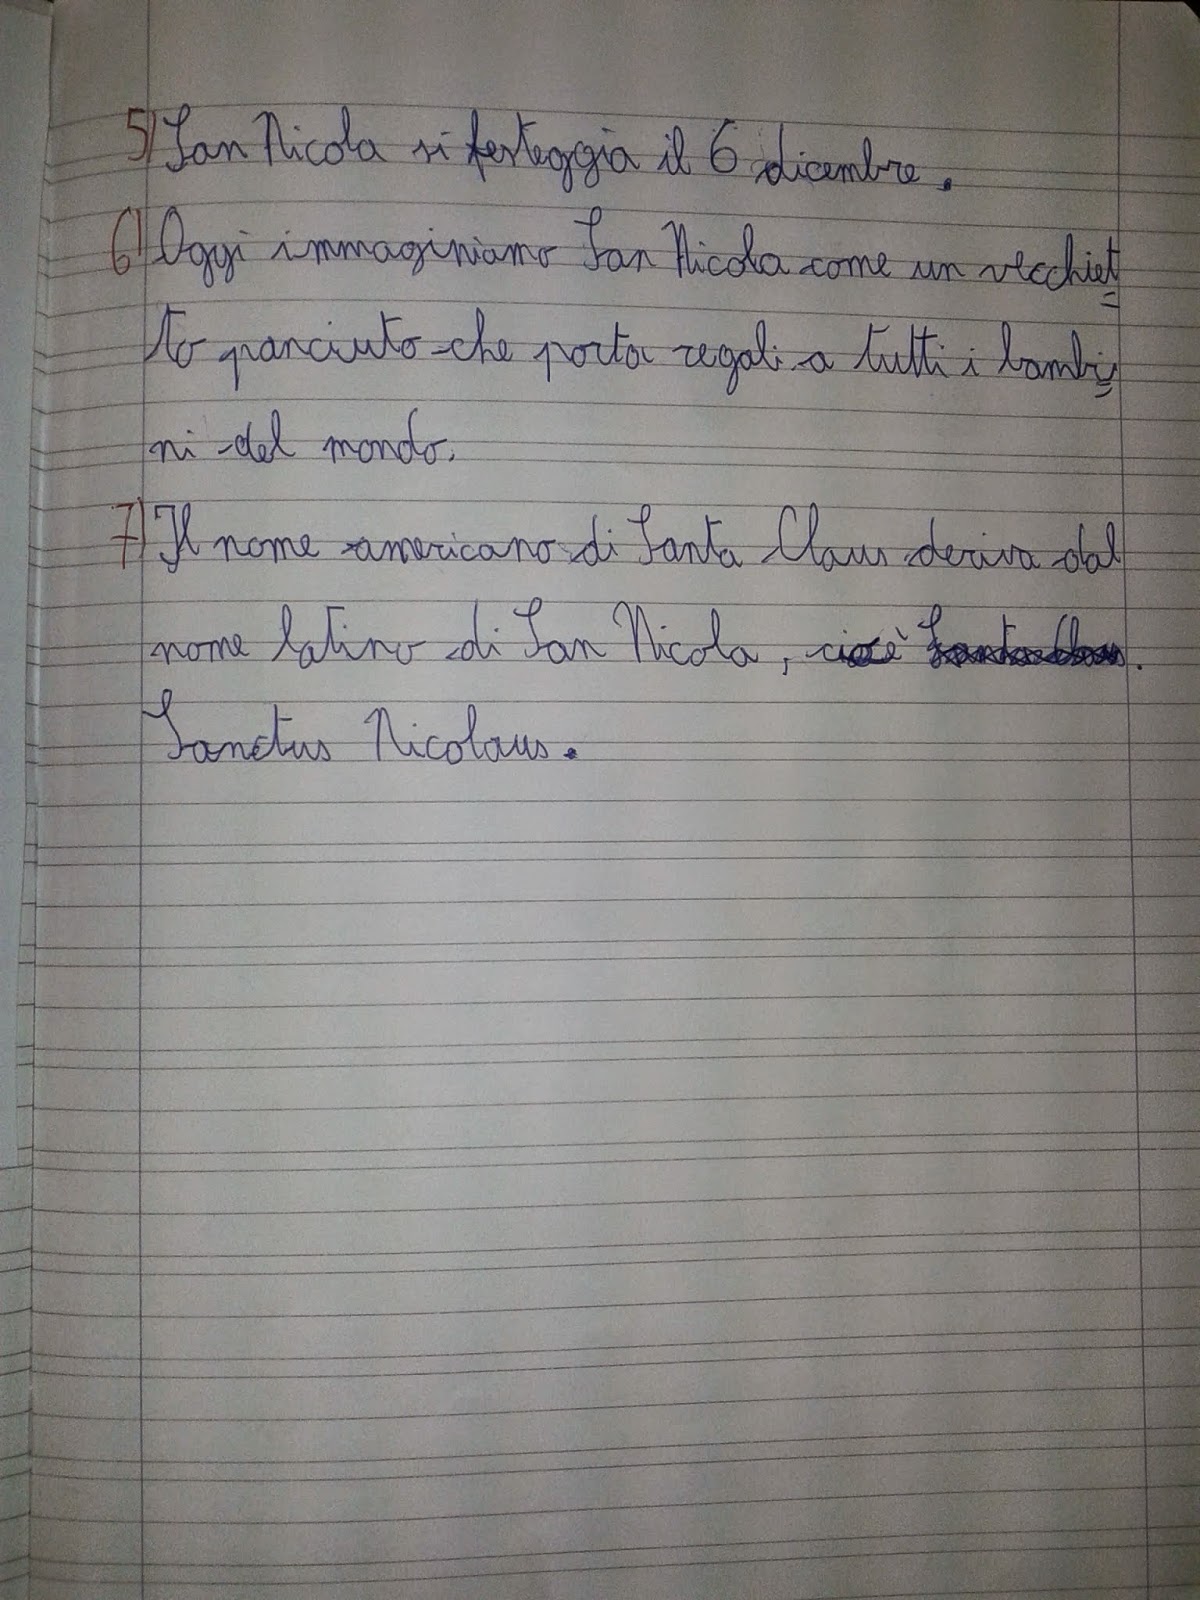 5) San Nicola si festeggia il 6 dicembre.
6) Oggi immaginiamo San Nicola come un vecchiet=
to panciuto che porta regali a tutti i bambi=
ni del mondo.
7) Il nome americano di Santa Claus deriva dal
nome latino di San Nicola, cioè Santa Claus.
Sanctus Nicolaus.